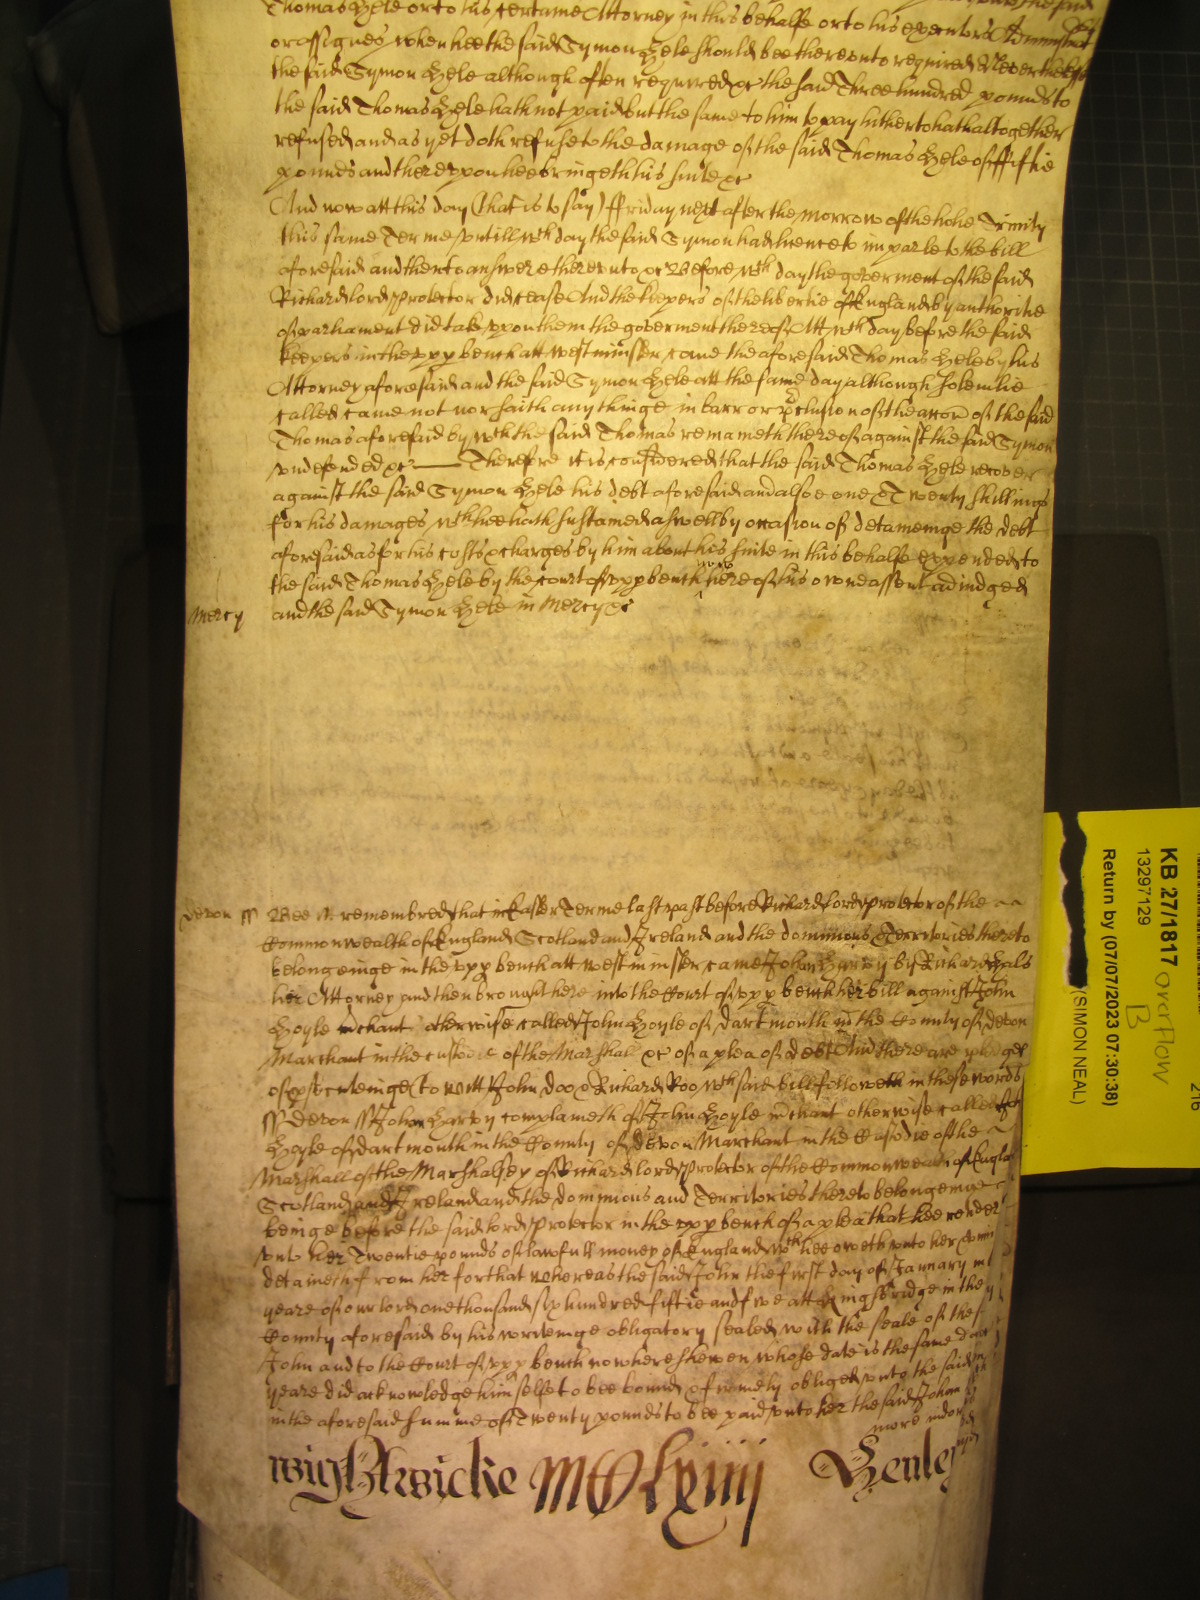 Thomas Hele or to his certaine Attorney in this behalfe or to his executors Administrat
or assignes when hee the said Symon Hele should bee thereunto required Neverthelesse
the said Symon Hele although often required &c the said Three hundred pounds to
the said Thomas Hele hath not paid but the same to him to pay hitherto hath altogether
refused and as yet doth refuse to the damage of the said Thomas Hele of ffiftie
pounds and thereupon hee bringeth his suite &c
And now att this day (that is to say) ffriday next after the morrow of the holie Trinity
this same Terme untill wch day the said Symon had licence to imparle to the bill
aforesaid and then to answere thereunto &c Before wch day the goverment of the said
Richard lord Protector did cease And the keepers of the libertie of England by authoritie
of parliament did take upon them the goverment thereof Att wch day before the said
keepers in the upp bench att Westminster came the aforesaid Thomas Hele by his
Attorney aforesaid and the said Symon Hele att the same day although solemlie
called came not nor saith any thinge in barr or pclusion of the accon of the said
Thomas aforesaid by wch the said Thomas remaineth thereof against the said Symon
undefended &c Therefore it is considered that the said Thomas Hele recover
against the said Symon Hele his debt aforesaid and alsoe one & Twenty shillings
for his damages wch hee hath sustained aswell by occasion of detaineinge the debt
aforesaid as for his costs & charges by him about his suite in this behalfe expended to
the said Thomas Hele by the court of upp bench now here of his owne assent adiudged
Mercy and the said Symon Hele in Mercy &c
Devon ss Bee it remembred that in Easter Terme last past before Richard lord Protector of the
Commonwealth of England Scotland and Ireland and the dominions & Territories thereto
belongeinge in the upp bench att Westminster came Johan Harvy by Richard Hals
her Attorney and then brought here into the Court of upp bench her bill against John
Hoyle mchant otherwise called John Hoyle of Dartmouth in the County of Devon
Marchant in the custodie of the Marshal &c of a plea of debt And there are pledges
of psecuteinge (to witt) John Doo & Richard Roo wch said bill followeth in these words
ss Devon ss Johan Harvy complaineth of John Hoyle mchant otherwise called John
Hoyle of Dartmouth in the County of Devon Marchant in the Custodie of the
Marshall of the Marshalsey of Richard lord Protector of the Commonwealth of England
Scotland and Ireland and the dominions and Territories thereto belongeinge
beinge before the said lord Protector in the upp bench of a plea that hee render
unto her Twentie pounds of lawfull money of England wch hee oweth unto her &
detaineth from her for that whereas the said John the first day of January in the
yeare of our lord one thousand six hundred fiftie and five att Kingsbridge in the
County aforesaid by his writeinge obligatory sealed with the seale of the
John and to the Court of upp bench now here shewen whose date is the same day
yeare did acknowledge himselfe to bee bound & firmely obliged unto the said
in the aforesaid summe of Twenty pounds to bee paid unto her the said Johan
more indors
Wightwicke MCClxiiij Henley
KB 27/1817
13297129
Return by (07/07/2023 07:30:38)
(SIMON NEAL)
overflow
B
216